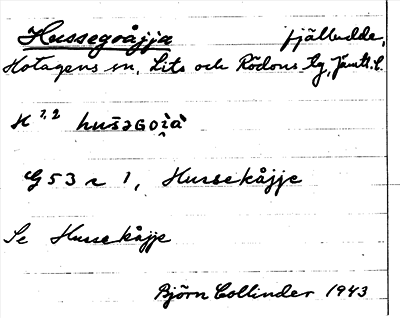 Hussegoåjja fjälludde,
Hotagens sn, Lits och Rödöns tg, Jämtl. l.
H 1,2 hus̄əGoi̯à
G 53 r 1, Hussekåjje
Se Hussekåjje
Björn Collinder 1943